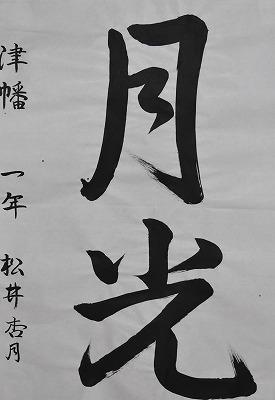 月光
津幡 一年 松井杏月